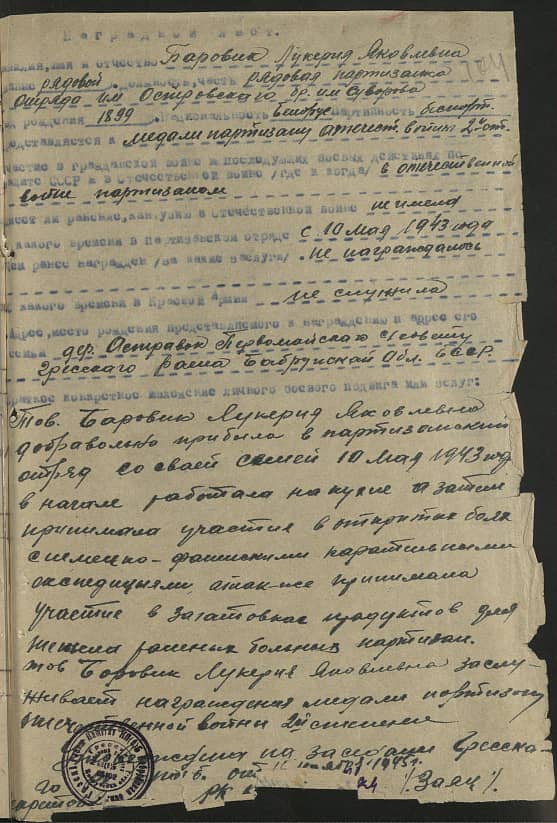 Наградной лист.
амилия, имя и отчество Паровик Лукерия Яковлевна
рядовой. должность, часть рядовая партизанка
отряда им Островского бр. им Суворова
рождения 1899. национальность Белорус Партийность беспарт.
едставляется к медали партизану отечест. войны 2й ст.
частие в гражданской войне и последующих боевых действиях по
ащите СССР и в Отечественной войне /где и когда/ в отечественной
войне партизаном
меет ли ранения, контузии в Отечественной войне не имела
какого времени в Партизанском отряде с 10 мая 1943 года
ем ранее награжден /за какие заслуги/. не награждалась
какого времени в Красной армии не служила
Адрес, место рождения представляемого к награждению и адрес его
семьи дер. Островок Первомайского с/совету
Гресского раена Бобруйской Обл. БССР.
раткое конкретное изложение личного боевого подвига или заслуг:
Тов. Боровик Лукерия Яковлевна
добравольно прибыла в партизанский
отряд со своей семей 10 мая 1943 год
в начале работала на кухне а затем
принимала участие в открытых боях
с немецко-фашискими каратильными
экспедициями, а так-же принимала
участие в заготовках продуктов для
раненых больных партизан.
тов Боровик Лукерия Яковлевна заслу-
живает награждения медали партизану
отечественной войны 2й степени
на заседании Гресска-
го от 11 1945г.
РК /Заяц/.